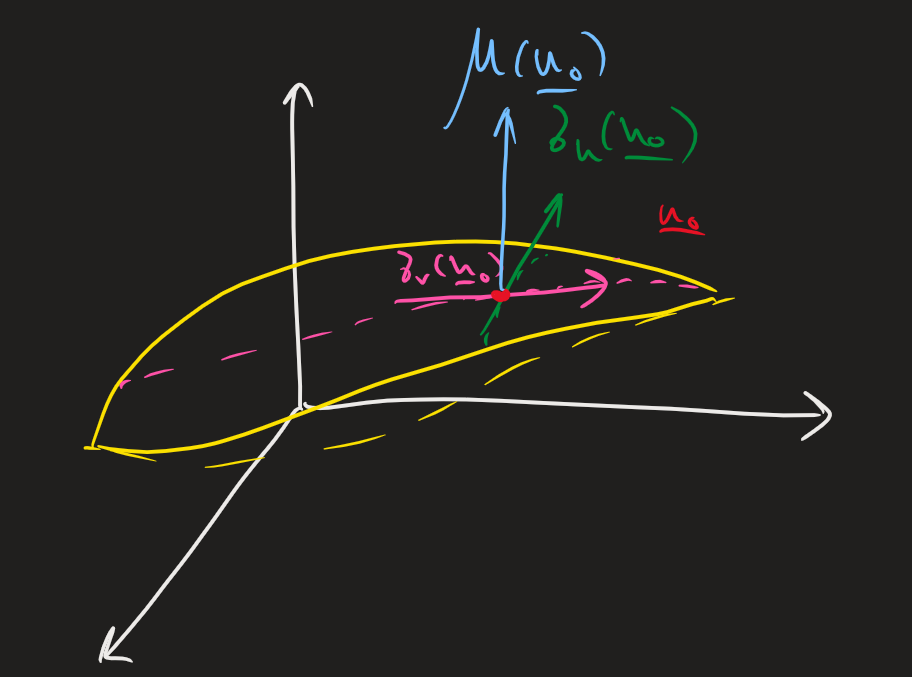 μ(u₀)
𝛾ᵤ(u₀)
u₀
𝛾ᵥ(u₀)